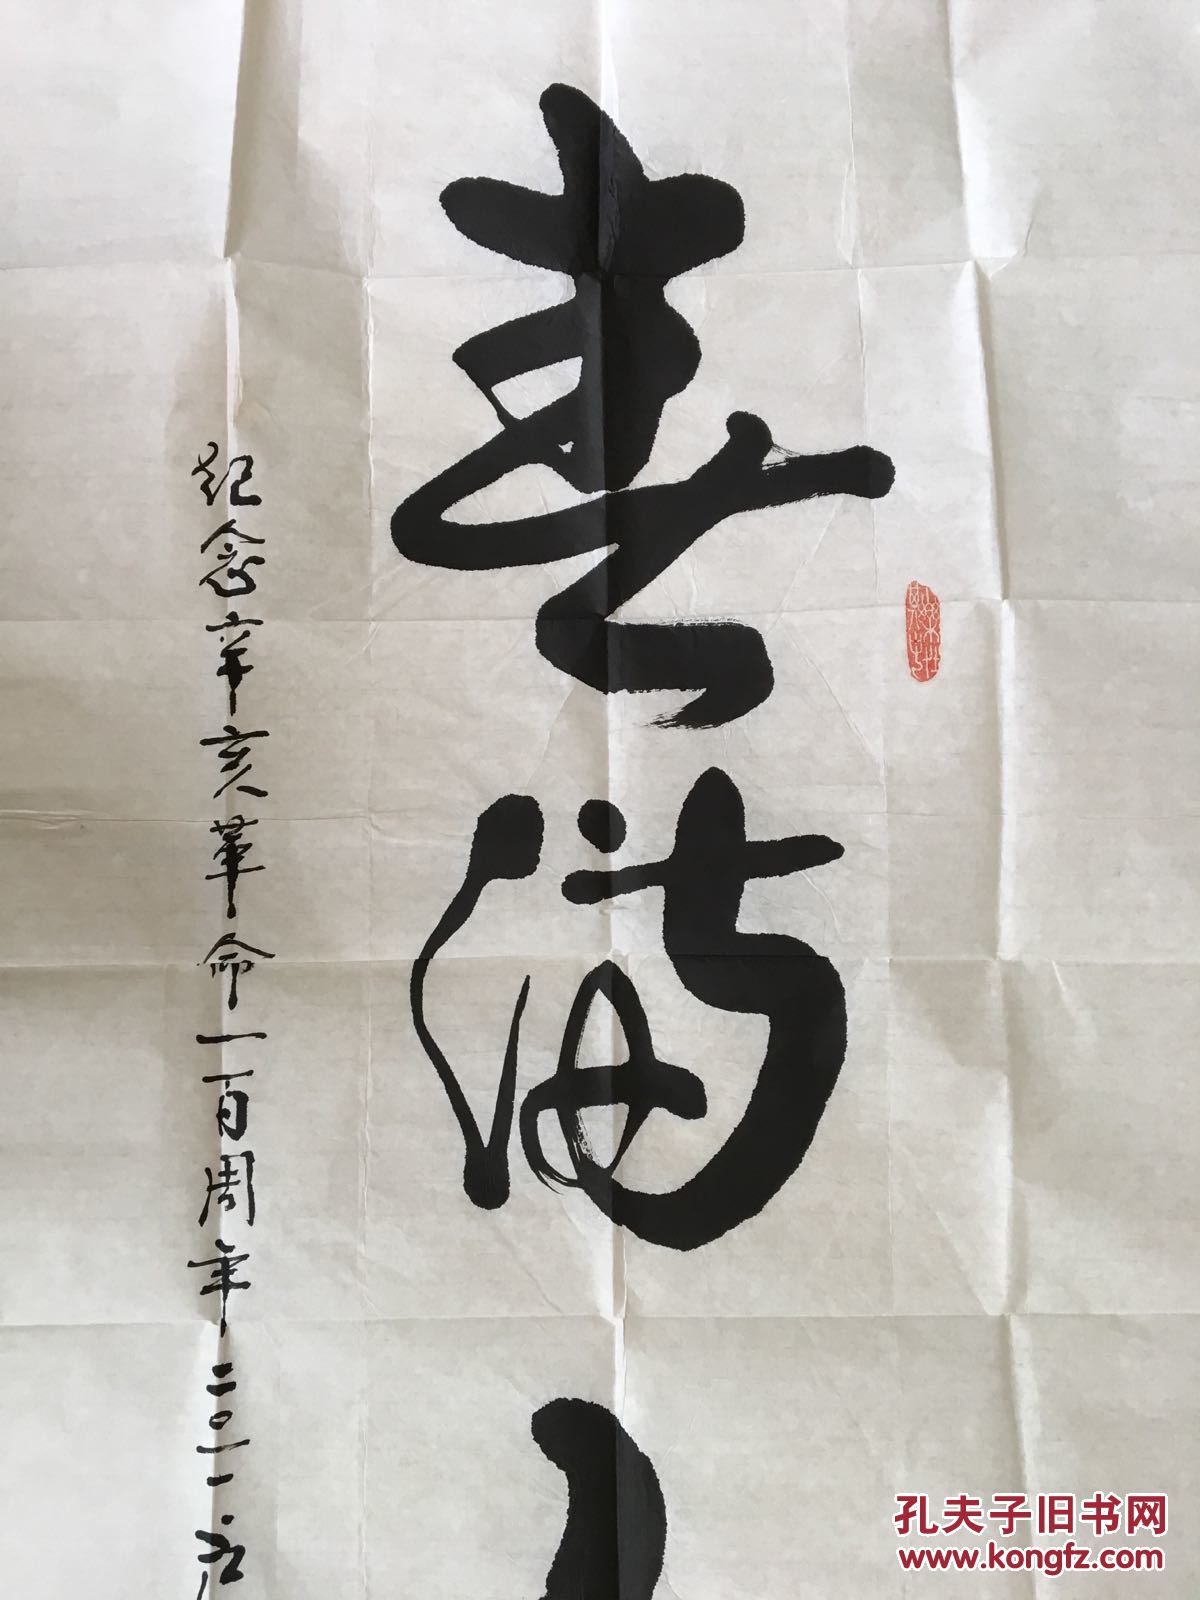 春满
纪念辛亥革命一百周年二〇一一.
孔夫子旧书网
www.kongfz.com